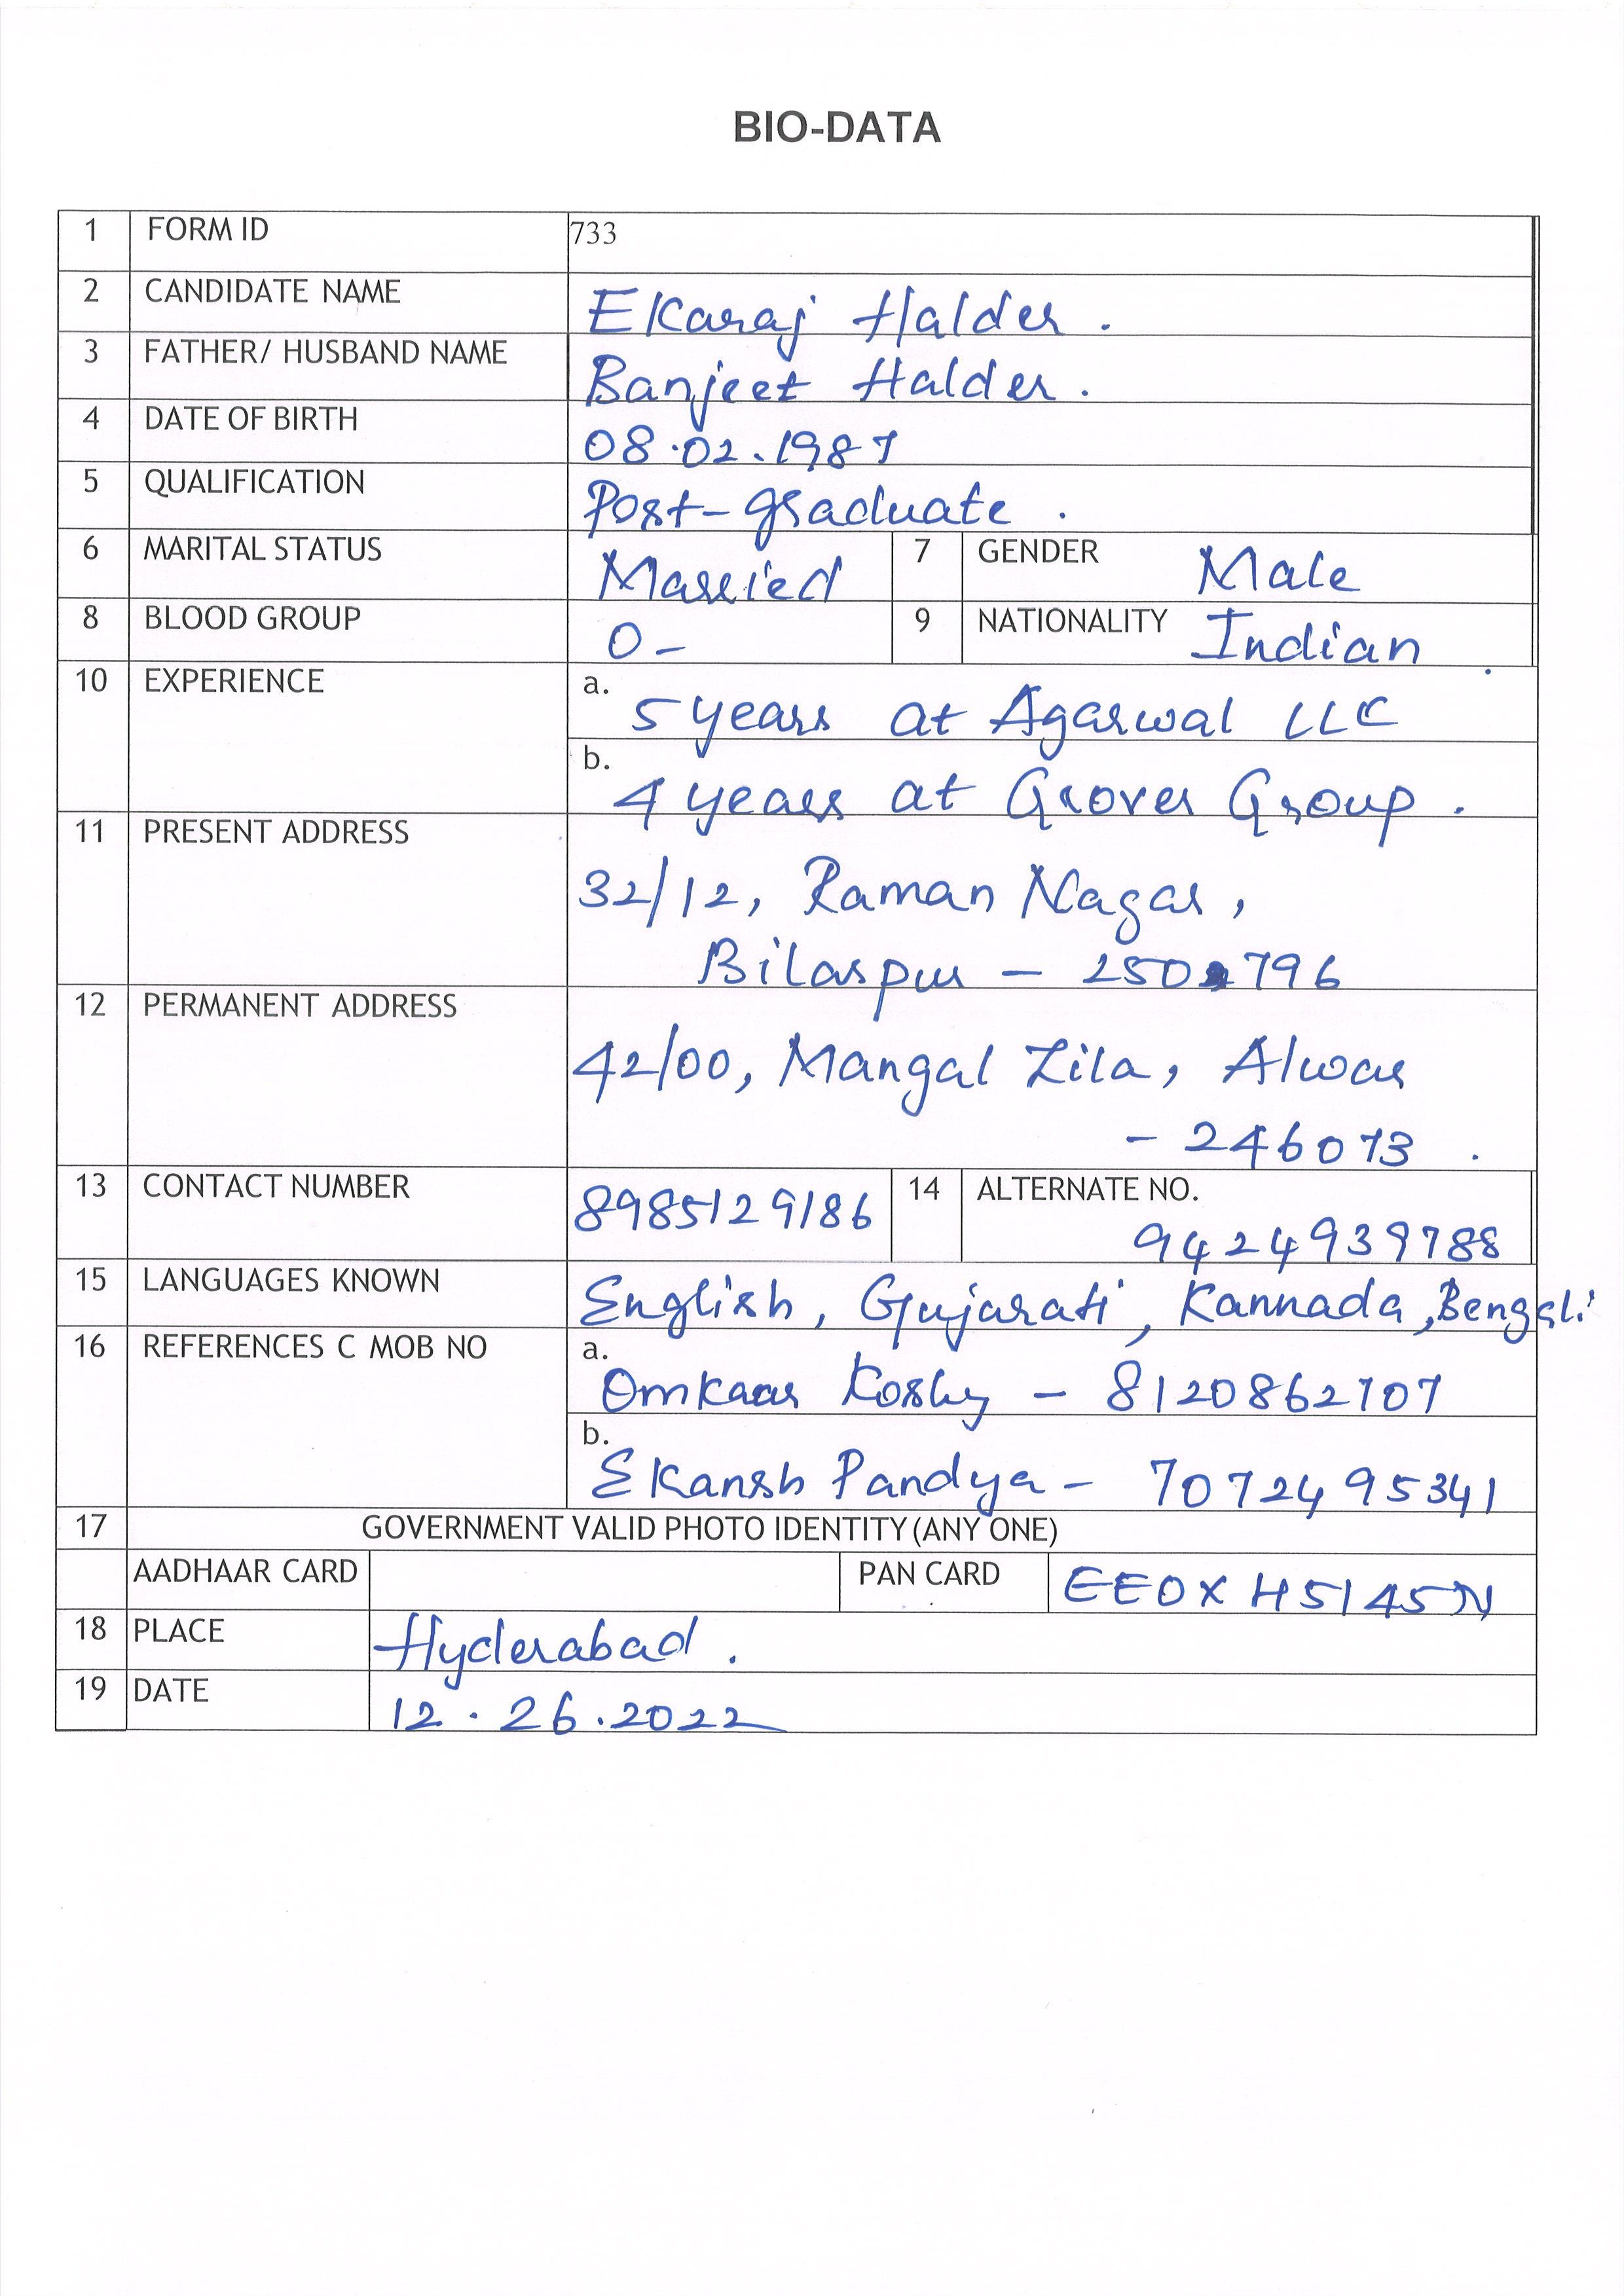 BIO-DATA
1 FORM ID 733
2 CANDIDATE NAME Ekaraj Halder.
3 FATHER/ HUSBAND NAME Banjeet Halder.
4 DATE OF BIRTH 08.02.1987
5 QUALIFICATION Post-graduate.
6 MARITAL STATUS Married 7 GENDER Male
8 BLOOD GROUP O- 9 NATIONALITY Indian.
10 EXPERIENCE a. 5 years at Agarwal LLC
b. 4 years at Grover Group.
11 PRESENT ADDRESS
32/12, Raman Nagar,
Bilaspur - 250796
12 PERMANENT ADDRESS
42/00, Mangal Zila, Alwar
- 246073.
13 CONTACT NUMBER 8985129186 14 ALTERNATE NO.
9424939788
15 LANGUAGES KNOWN English, Gujarati, Kannada, Bengali
16 REFERENCES C MOB NO a.
Omkaar Koshy - 8120862707
b.
Ekansh Pandya - 7072495341
17 GOVERNMENT VALID PHOTO IDENTITY (ANY ONE)
AADHAAR CARD PAN CARD EEOXH5145N
18 PLACE Hyderabad.
19 DATE 12.26.2022